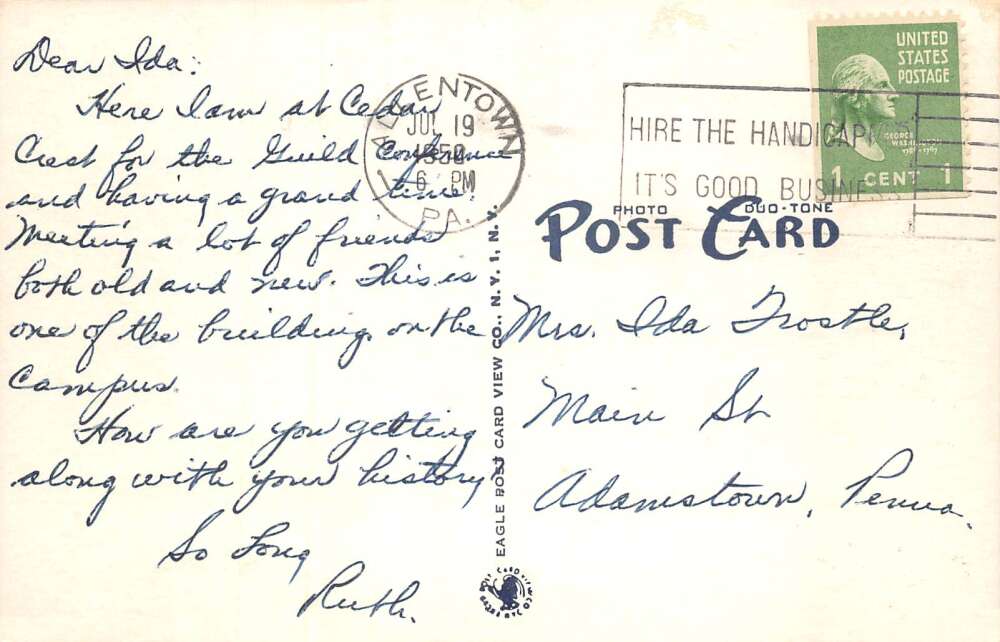 Dear Ida:
Here I am at Cedar
Crest for the Guild Conference
and having a grand time.
Meeting a lot of friends
both old and new. This is
one of the building on the
campus.
How are you getting
along with your history
So Long
Ruth.
ALLENTOWN
JUL 19
1950
6 PM
PA.
HIRE THE HANDICAPPED
IT'S GOOD BUSINESS
UNITED
STATES
POSTAGE
GEORGE
WASHINGTON
1 CENT 1
PHOTO DUO-TONE
POST CARD
Mrs. Ida Trostle,
Main St
Adamstown, Penna.
EAGLE POST CARD VIEW CO., N. Y. 1, N. Y.